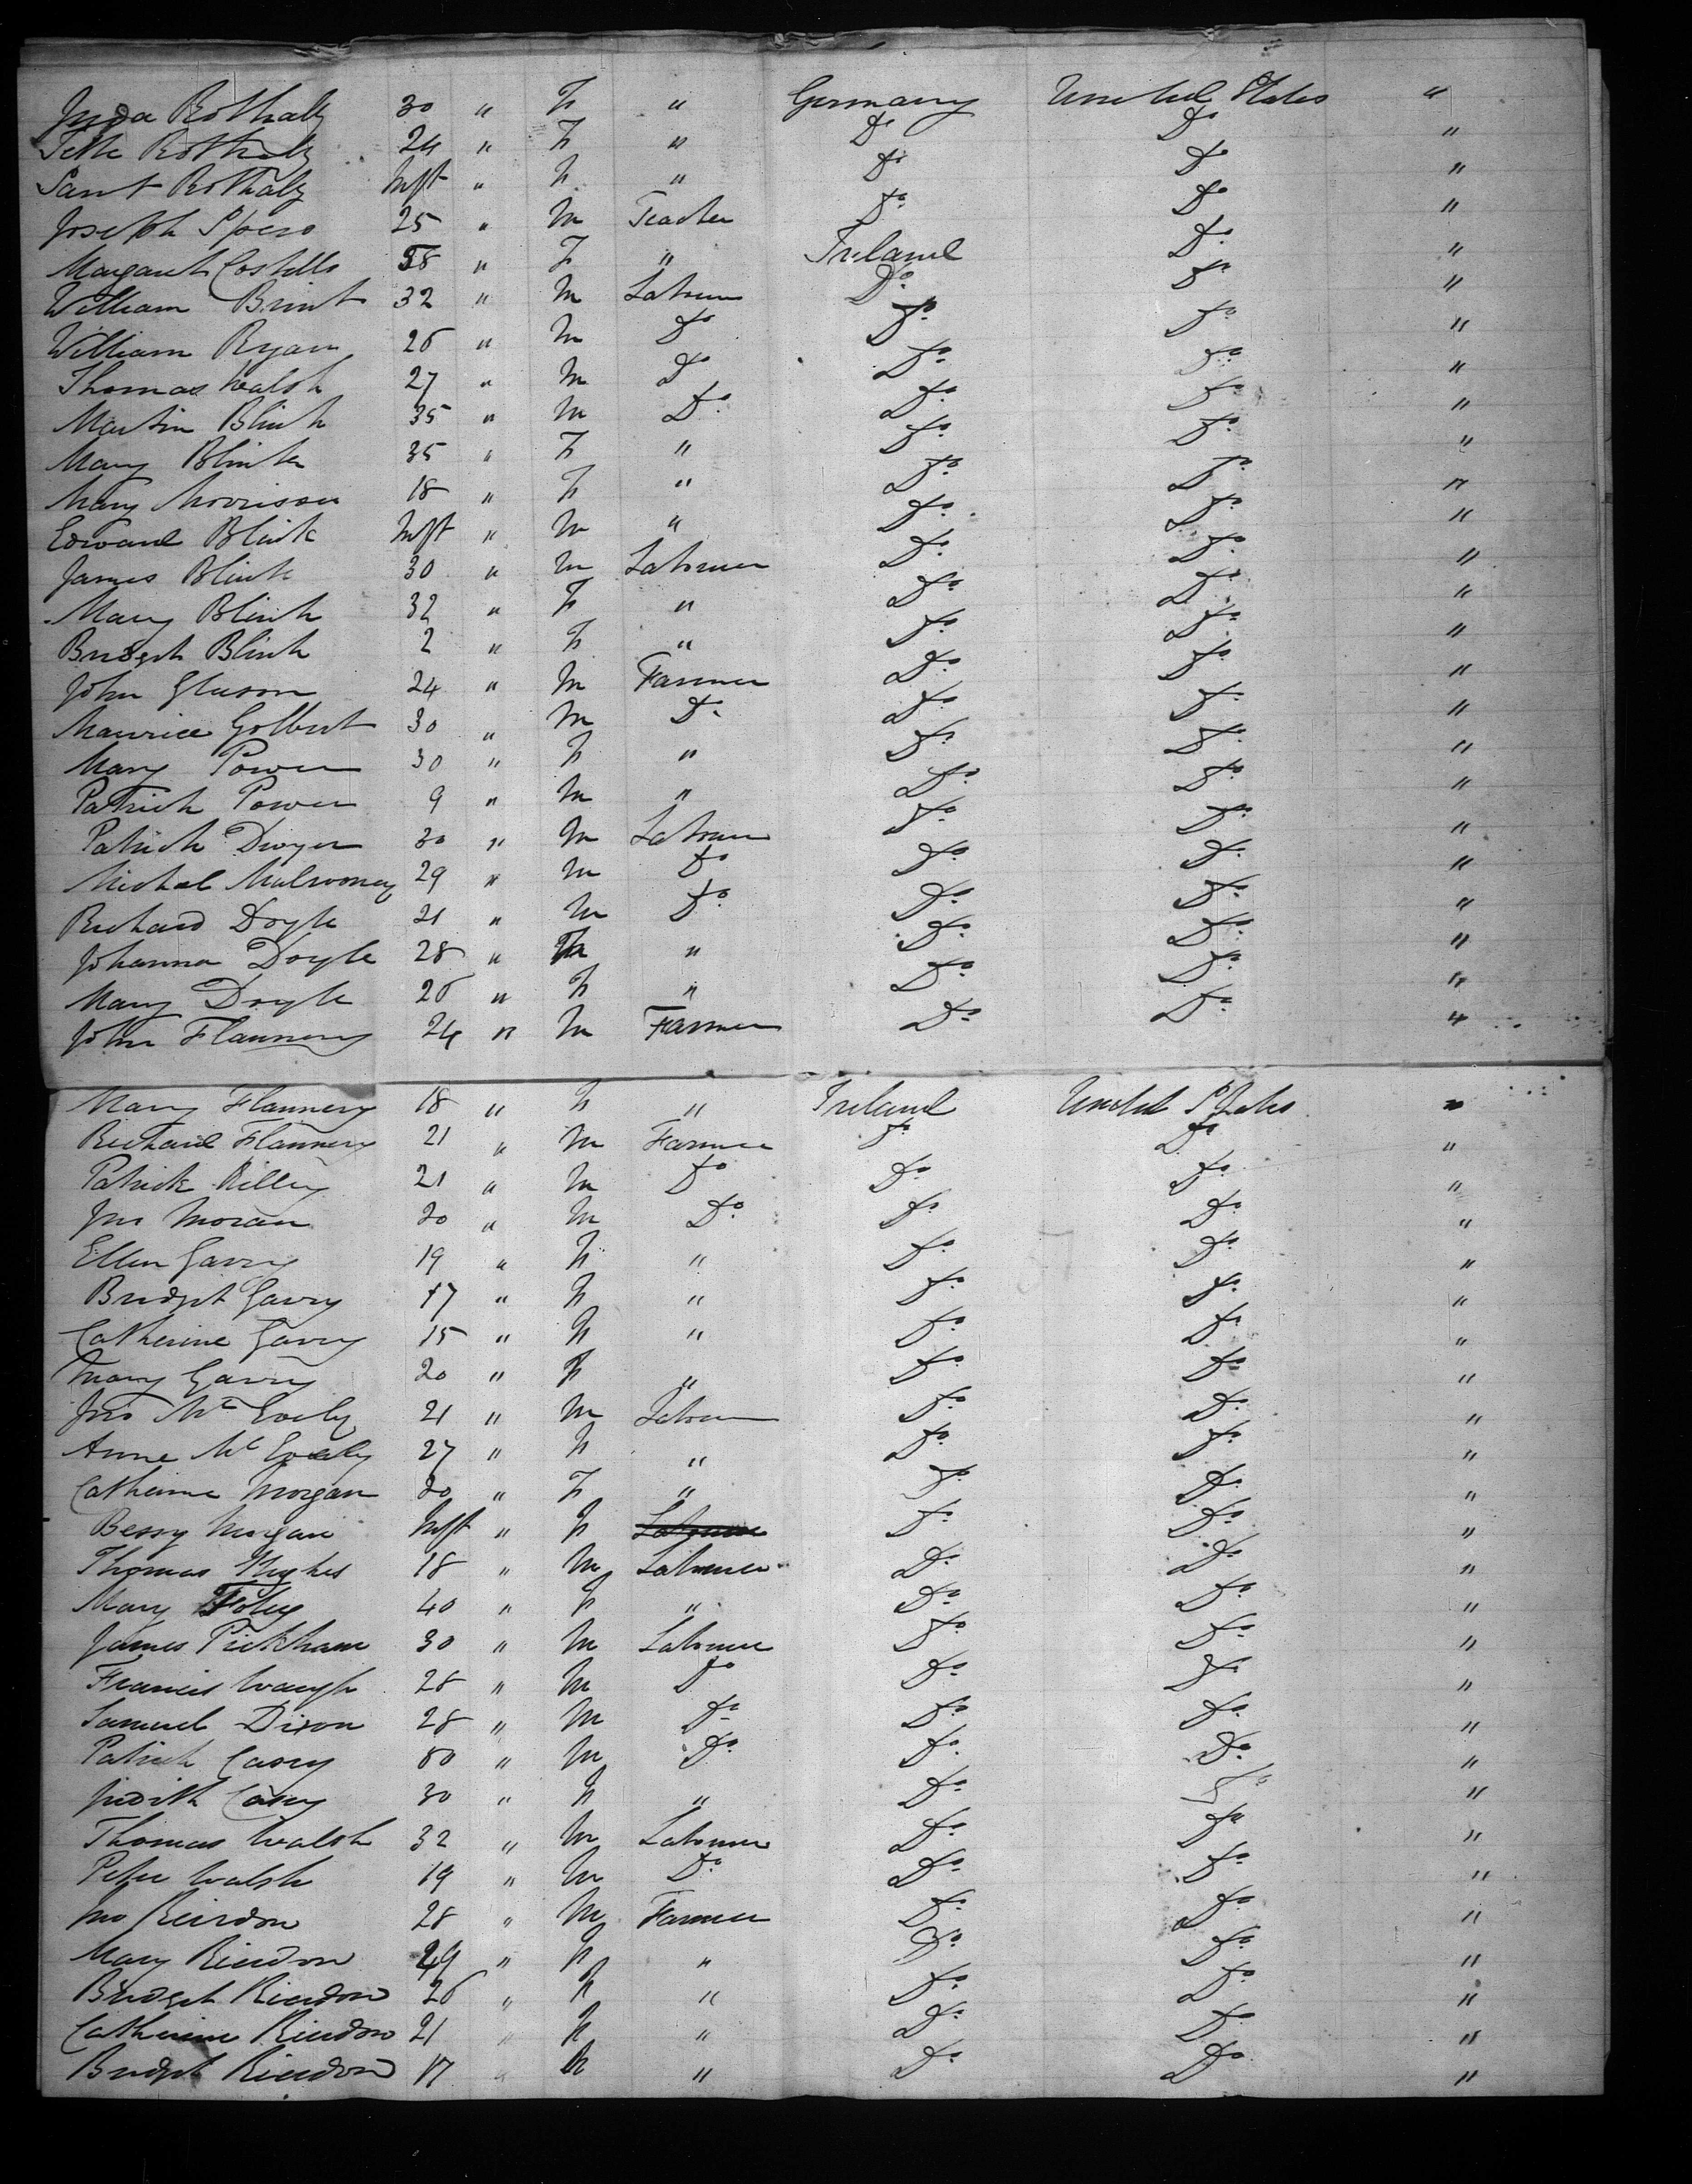 Juda Rothally 30 " F " Germany United States "
Jette Rothally 24 " F " Do Do "
Sant Rothally Inft " F " Do Do "
Joseph Spero 25 " M Teacher Do Do "
Margaret Costello 58 " F " Ireland Do "
William Brint 32 " M Labourer Do Do "
William Ryan 26 " M Do Do Do "
Thomas Walsh 27 " M Do Do Do "
Martin Blink 35 " M Do Do Do "
Mary Blink 35 " F " Do Do "
Mary Morrison 18 " F " Do Do "
Edward Blink Inft " M " Do Do "
James Blink 30 " M Labourer Do Do "
Mary Blink 32 " F " Do Do "
Bridget Blink 2 " F " Do Do "
John Gleason 24 " M Farmer Do Do "
Maurice Golbert 30 " M Do Do Do "
Mary Power 30 " F " Do Do "
Patrick Power 9 " M " Do Do "
Patrick Dwyer 30 " M Labourer Do Do "
Michael Mulrooney 29 " M Do Do Do "
Richard Doyle 21 " M Do Do Do "
Johanna Doyle 28 " F " Do Do "
Mary Doyle 26 " F " Do Do "
John Flannery 24 " M Farmer Do Do "
Mary Flannery 18 " F " Ireland United States "
Richard Flannery 21 " M Farmer Do Do "
Patrick Killey 21 " M Do Do Do "
Jno Moran 20 " M Do Do Do "
Ellen Garry 19 " F " Do Do "
Bridget Garry 17 " F " Do Do "
Catherine Garry 15 " F " Do Do "
Mary Garry 20 " F " Do Do "
Jno McEvely 21 " M Labourer Do Do "
Anne McEvely 27 " F " Do Do "
Catherine Morgan 20 " F " Do Do "
Bessy Morgan Inft " F Labourer Do Do "
Thomas Hughes 18 " M Labourer Do Do "
Mary Foley 40 " F " Do Do "
James Pickham 30 " M Labourer Do Do "
Francis Waugh 28 " M Do Do Do "
Samuel Dixon 28 " M Do Do Do "
Patrick Casey 80 " M Do Do Do "
Judith Casey 30 " F " Do Do "
Thomas Walsh 32 " M Labourer Do Do "
Peter Walsh 19 " M Do Do Do "
Jno Reirdon 28 " M Farmer Do Do "
Mary Rierdon 49 " F " Do Do "
Bridget Rierdon 26 " F " Do Do "
Catherine Rierdon 21 " F " Do Do "
Bridget Rierdon 17 " F " Do Do "